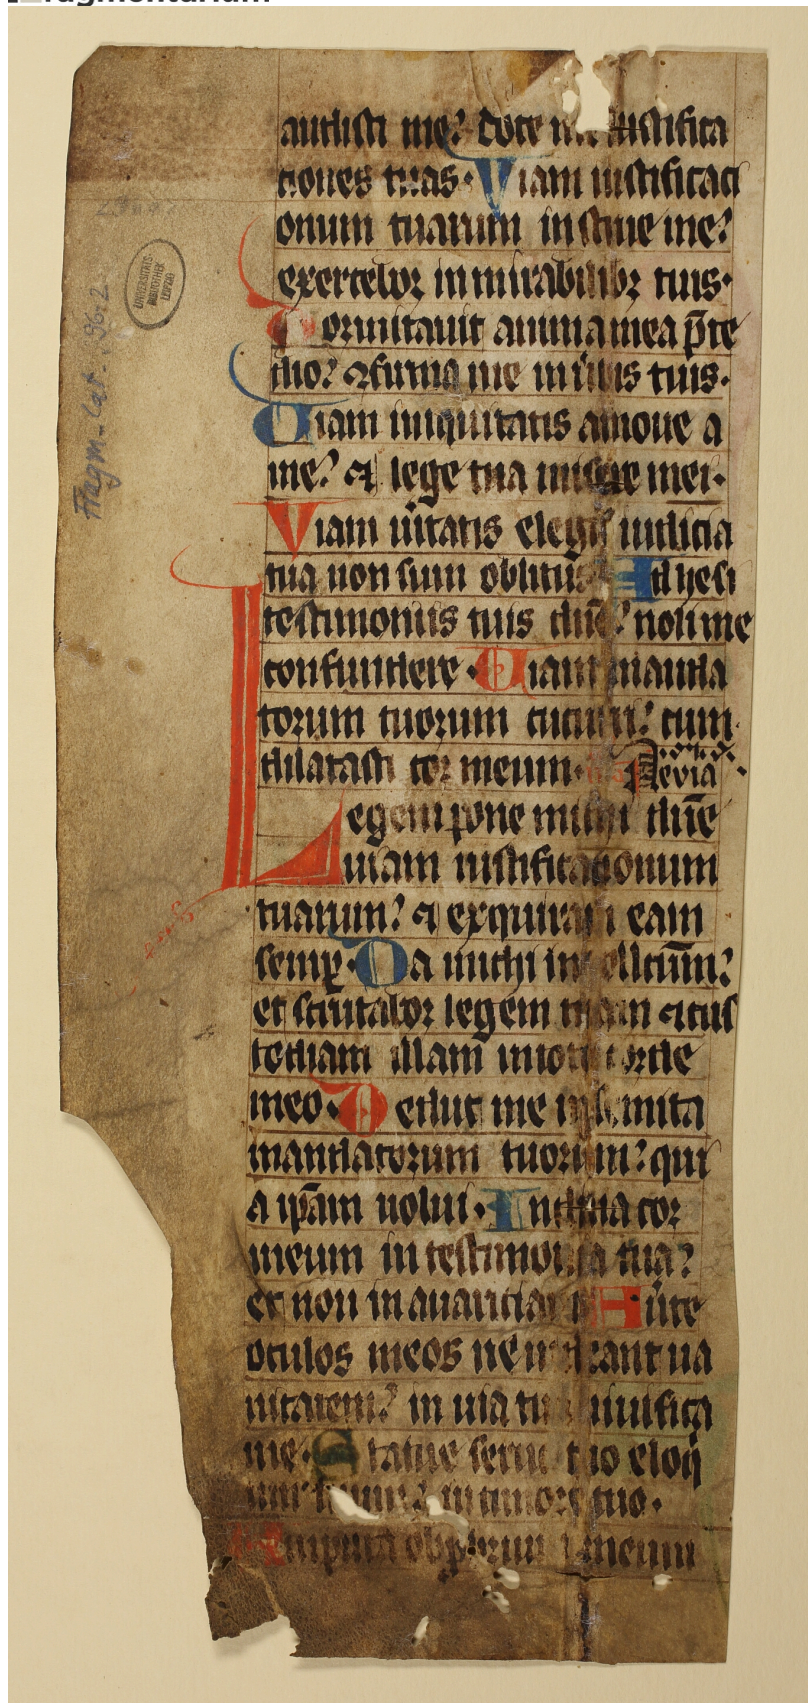 audisti me? doce me iustifica
tiones tuas. Viam iustificaci
onum tuarum instrue me?
exercebor in mirabilibꝫ tuis.
Dormitauit anima mea p̄ te
dio? ⁊firma me in ũbis tuis.
Uiam iniquitatis amoue a
me? et lege tua misere mei.
Viam ũitatis elegi? iudicia
tua non sum oblitus Adhesi
testimoniis tuis dn̄e? noli me
confundere. Uiam manda
torum tuorum cucurri? cum
dilatasti cor meum.
Legem pone michi dn̄e
uiam iustificationum
tuarum? et exquiram eam
semꝑ. Da michi intellectum?
et scrutabor legem tuam ⁊cus
todiam illam in toto corde
meo. Deduc me in semita
mandatorum tuorum? qui
a ip̄am uolui. Inclina cor
meum in testimonia tua?
et non in auaritiam Aũte
oculos meos ne uideant ua
nitatem? in uia tua uiuifica
me. Statue seruo tuo eloq̄
um tuum? in timore tuo.
Amputa obꝓbrium meum
UNIVERSITÄTS-
BIBLIOTHEK
LEIPZIG
Fragm. lat. 96.2